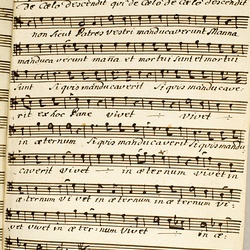 de Cælo descendit qui de Cælo de Cælo descendit
non sicut Patres vestri manducaverunt Manna
manduca verunt massa et mortui sunt et mortui
sunt Si quis manducaverit Si quis manducave
rit ex hoc Pane vivet vivet
in æternum Si quis manducaverit Si quis mandu
caverit vivet in æternum vivet
in æternum vivet in æternum vi
vet vivet in æternum vivet in æ